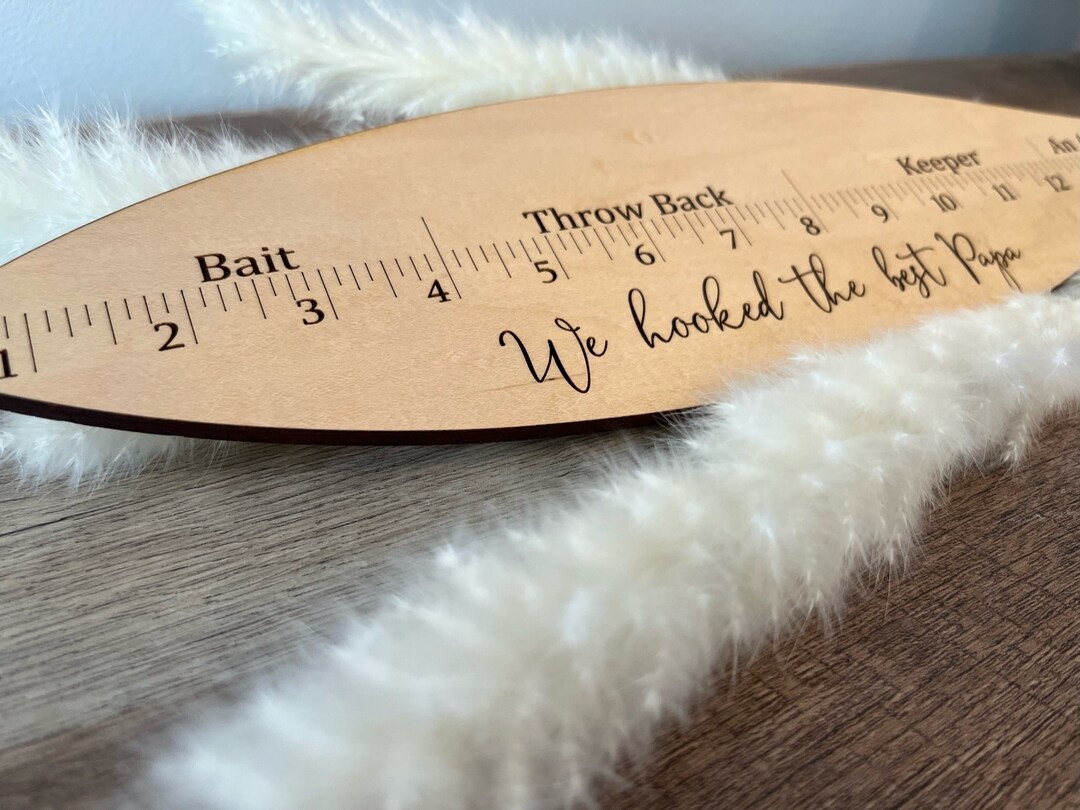 Bait Throw Back Keeper An
1 2 3 4 5 6 7 8 9 10 11 12
We hooked the best Papa